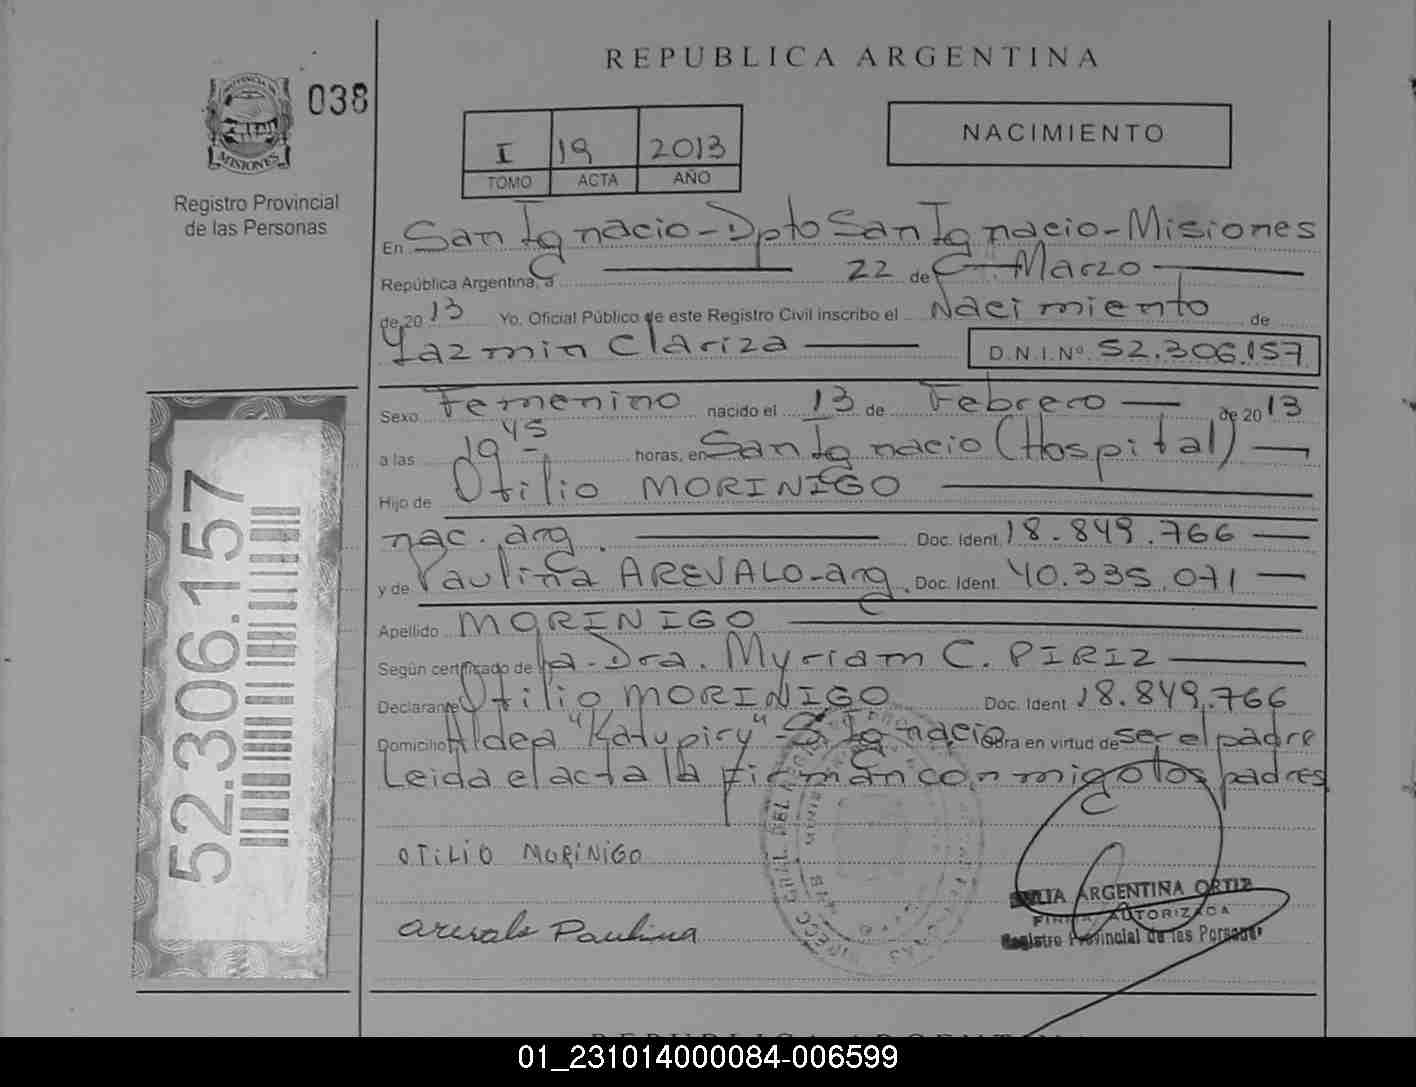 REPUBLICA ARGENTINA
038
I 19 2013
TOMO ACTA AÑO
NACIMIENTO
MISIONES
Registro Provincial
de las Personas
En San Ignacio - Dpto San Ignacio - Misiones
República Argentina, a 22 de Marzo
de 2013 Yo, Oficial Público de este Registro Civil inscribo el Nacimiento de
Yazmin Clariza D.N.I.Nº 52.306.157
Sexo Femenino nacido el 13 de Febrero de 2013
a las 19 45 horas, en San Ignacio (Hospital)
Hijo de Otilio MORINIGO
nac. arg. Doc. Ident. 18.849.766
y de Paulina AREVALO - arg. Doc. Ident. 40.335.071
Apellido MORINIGO
Según certificado de la Dra. Myriam C. PIRIZ
Declarante Otilio MORINIGO Doc. Ident 18.849.766
Domicilio Aldea "Katupiry" - S. Ignacio Obra en virtud de ser el padre
Leida el acta la firman conmigo los padres
OTILIO MORINIGO
Arevalo Paulina
52.306.157
JULIA ARGENTINA ORTIZ
FIRMA AUTORIZADA
Registro Provincial de las Personas
REPUBLICA ARGENTINA
01_231014000084-006599